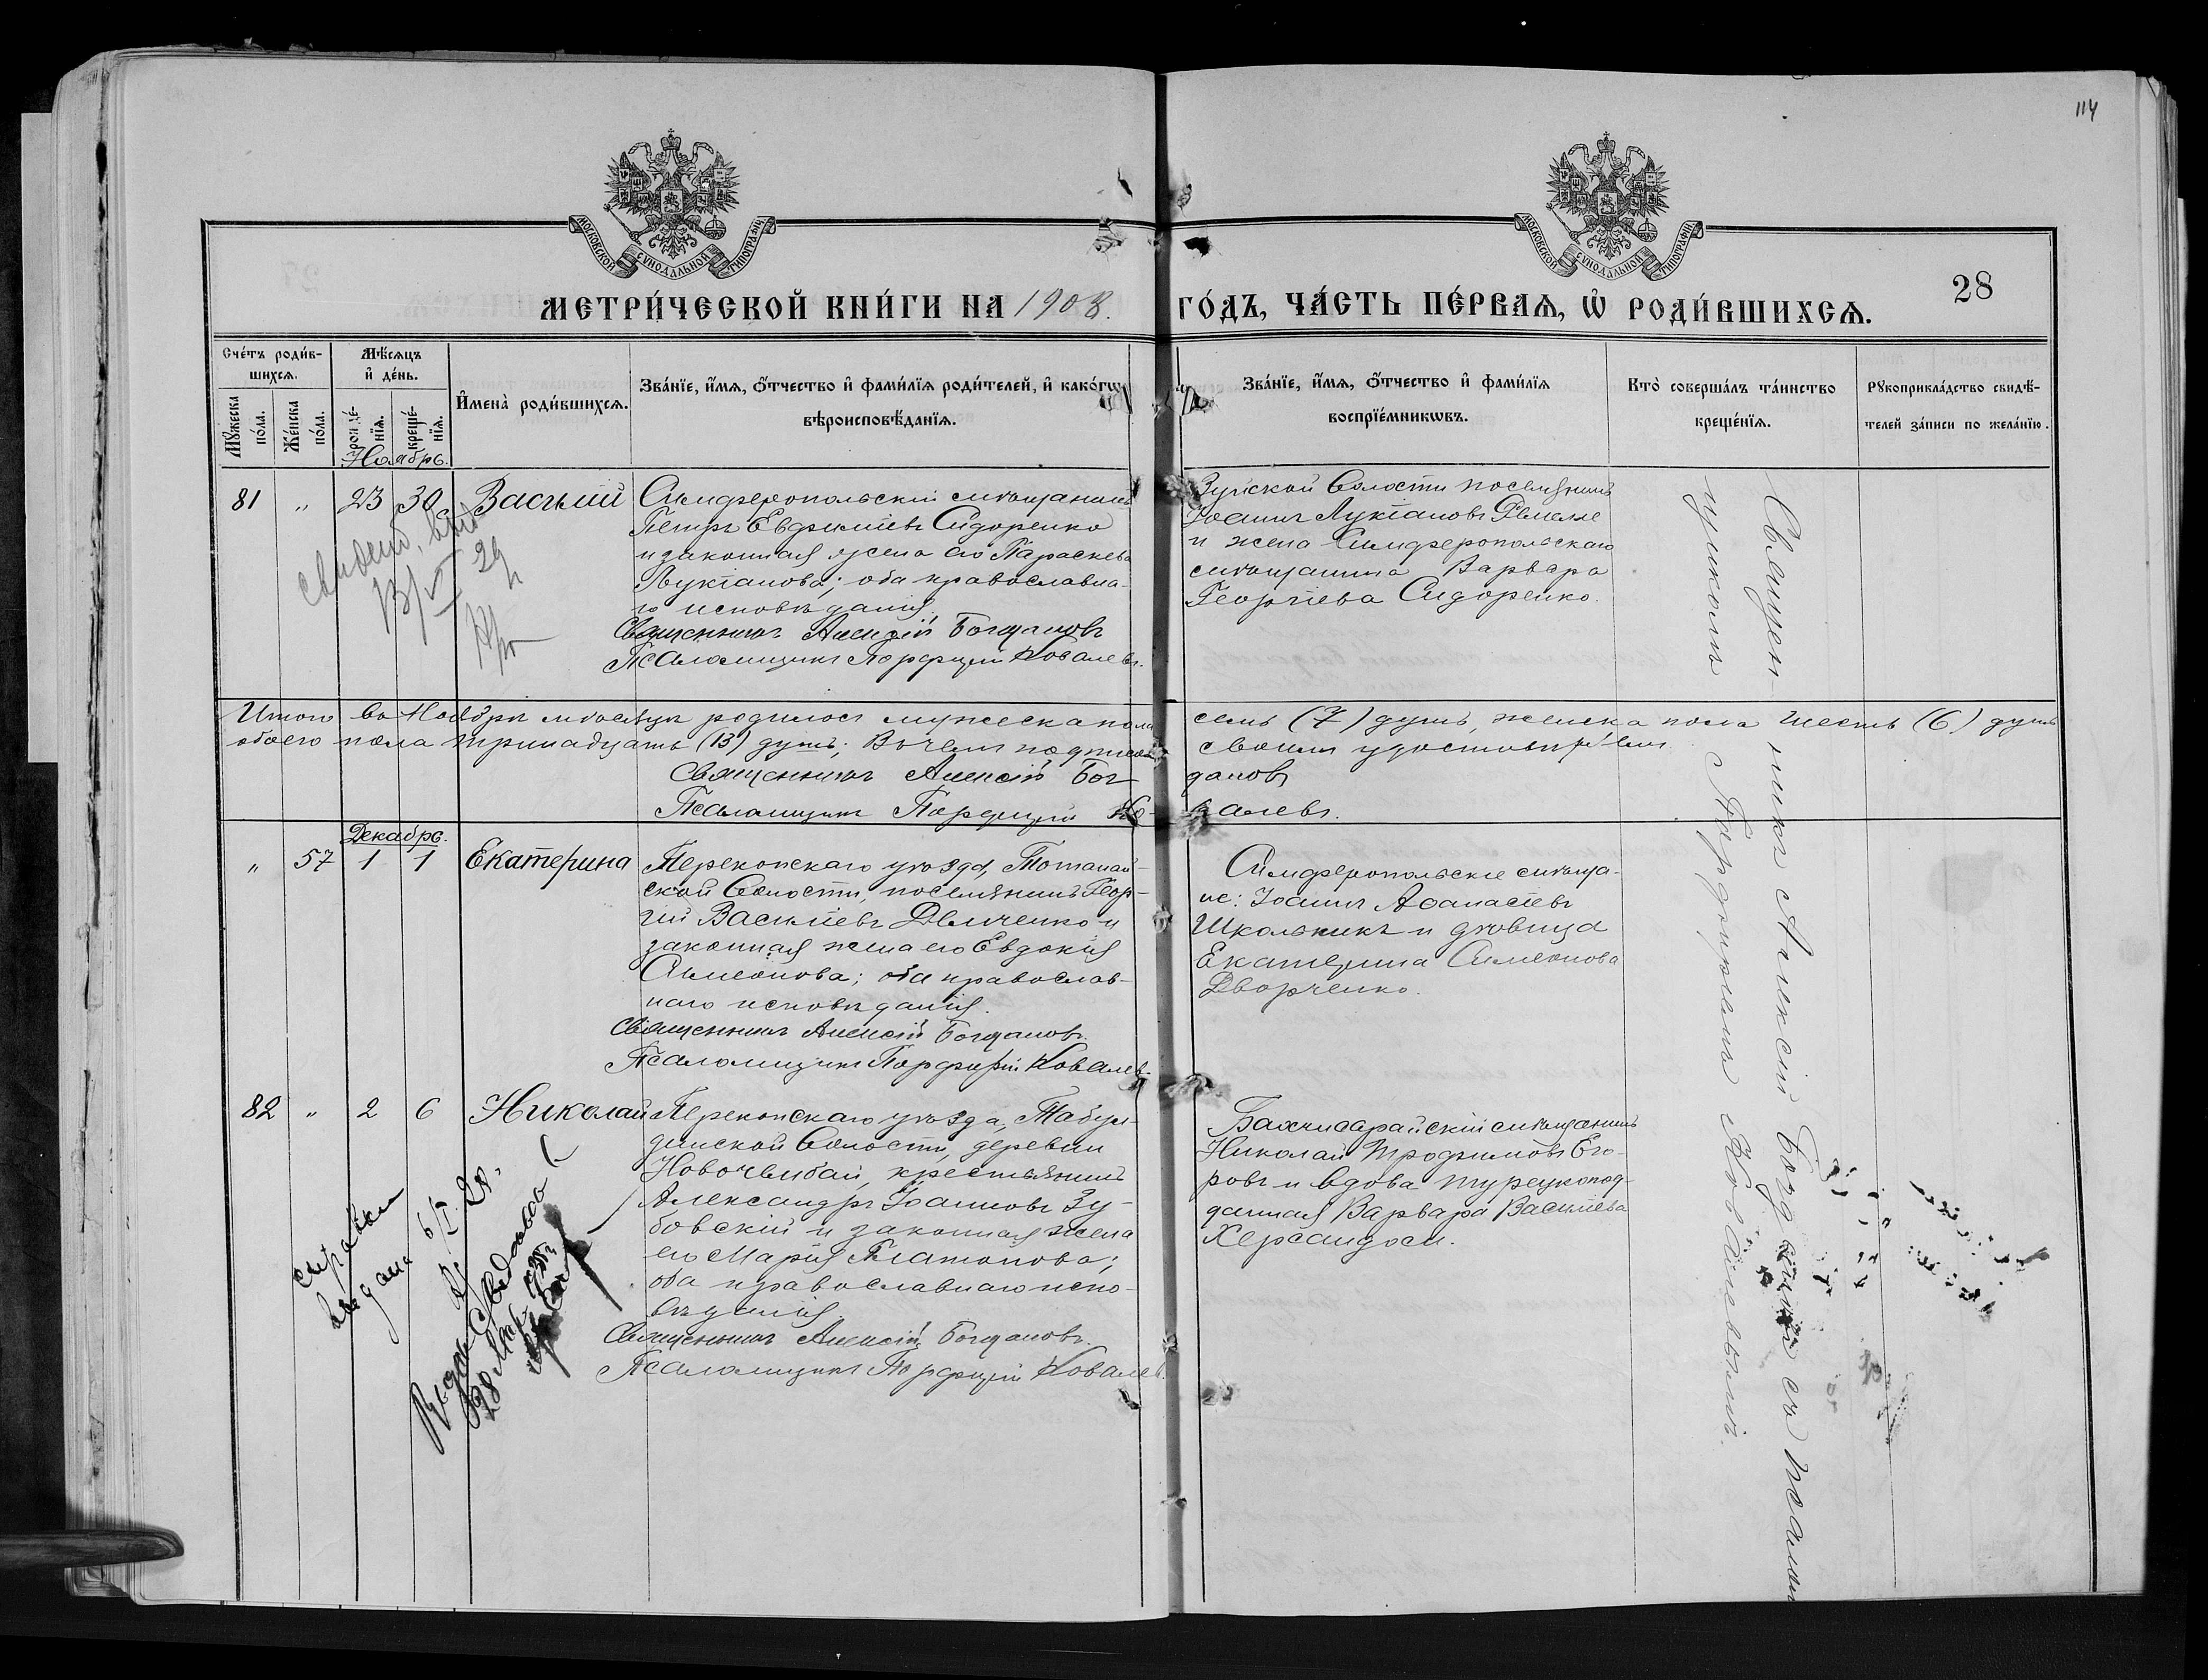 114
МОСКОВСКОЙ СѴНОДАЛЬНОЙ ТИПОГРАФІИ
МОСКОВСКОЙ СѴНОДАЛЬНОЙ ТИПОГРАФІИ
28
МЕТРИ́ЧЕСКОЙ КНИ́ГИ НА 1908.
ГО́ДЪ, ЧА́СТЬ ПЕ́РВАѦ, Ѽ РОДИ́ВШИХСѦ.
Сче́тъ роди́в-
шихсѧ.
Мѣ́сѧцъ
и҆ де́нь.
Мꙋ́жеска
по́ла.
Же́нска
по́ла.
рожде́-
нїѧ.
креще́-
нїѧ.
И҆мена̀ роди́вшихсѧ.
Зва́нїе, и҆́мѧ, ѻ҆́тчество и҆ фами́лїѧ роди́телей, и҆ како́гѡ
вѣроисповѣ́данїѧ.
Зва́нїе, и҆́мѧ, ѻ҆́тчество и҆ фами́лїѧ
воспрїе́мникѡвъ.
Кто̀ соверша́лъ та́инство
креще́нїѧ.
Рꙋкоприкла́дство свидѣ́-
телей за́писи по жела́нїю.
Ноябрь.
81 „ 23 30 Василій
Симферопольскій мѣщанинъ
Петръ Евфиміевъ Сидоренко
и законная жена его Параскева
Лукіанова; оба православна-
го исповѣданія.
Священникъ Алексій Богдановъ
Псаломщикъ Порфирій Ковалевъ.
Зуйской волости поселянинъ
Іоаннъ Лукіановъ
и жена Симферопольскаго
мѣщанина Варвара
Георгіева Сидоренко.
Священникъ Алексій Богдановъ съ псалом-
щикомъ Порфиріемъ Ковалевымъ.
Итого въ Ноябрѣ мѣсяцѣ родилось мужеска пола
семь (7) душъ, женска пола шесть (6) душъ
обоего пола тринадцать (13) душъ; въ чемъ подписом
своимъ удостовѣряемъ.
Священникъ Алексій Бог-
дановъ
Псаломщикъ Порфирій Ко-
валевъ.
Декабрь.
„ 57 1 1 Екатерина
Перекопскаго уѣзда, Тотанай-
ской волости, поселянинъ Геор-
гій Василіевъ Демченко и
законная жена его Евдокія
Симеонова; оба православ-
наго исповѣданія.
Священникъ Алексій Богдановъ.
Псаломщикъ Порфирій Ковалевъ.
Симферопольскіе мѣща-
не: Іоаннъ Аѳанасіевъ
Школьникъ и дѣвица
Екатерина Симеонова
Дворченко.
82 „ 2 6 Николай
Перекопскаго уѣзда, Табул-
динской волости, деревни
Новочембай, крестьянинъ
Александръ Іоанновъ Зу-
бовскій и законная жена
его Марія Платонова;
оба православнаго испо-
вѣданія.
Священникъ Алексій Богдановъ.
Псаломщикъ Порфирій Ковалевъ.
Бахчисарайскій мѣщанинъ
Николай Трофимовъ Его-
ровъ и вдова турецкопод-
данная Варвара Василіева
Херсандоси.
справка
выдана 6/I 28.